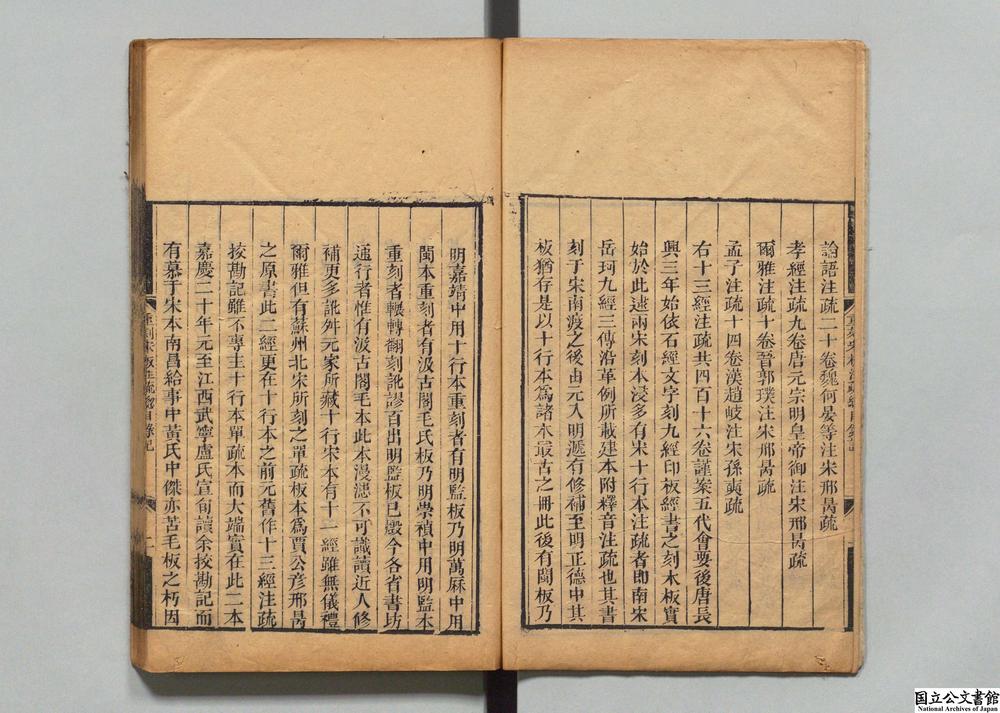 論語注疏二十卷魏何晏等注宋邢昺疏
孝經注疏九卷唐元宗明皇帝御注宋邢昺疏
爾雅注疏十卷晉郭璞注宋邢昺疏
孟子注疏十四卷漢趙岐注宋孫奭疏
右十三經注疏共四百十六卷謹案五代會要後唐長
興三年始依石經文字刻九經印板經書之刻木板實
始於此逮兩宋刻本浸多有宋十行本注疏者即南宋
岳珂九經三傳沿革例所載建本附釋音注疏也其書
刻于宋南渡之後由元入明遞有修補至明正德中其
板猶存是以十行本為諸本最古之冊此後有閩板乃
明嘉靖中用十行本重刻者有明監板乃明萬厤中用
閩本重刻者有汲古閣毛氏板乃明崇禎中用明監本
重刻者輾轉翻刻訛謬百出明監板已燬今各省書坊
通行者惟有汲古閣毛本此本漫漶不可識讀近人修
補更多訛舛元家所藏十行宋本有十一經雖無儀禮
爾雅但有蘇州北宋所刻之單疏板本為賈公彥邢昺
之原書此二經更在十行本之前元舊作十三經注疏
挍勘記雖不專主十行本單疏本而大端實在此二本
嘉慶二十年元至江西武寧盧氏宣旬讀余挍勘記而
有慕于宋本南昌給事中黃氏中傑亦苦毛板之朽因
重刻宋板注疏總目錄記
二
国立公文書館
National Archives of Japan